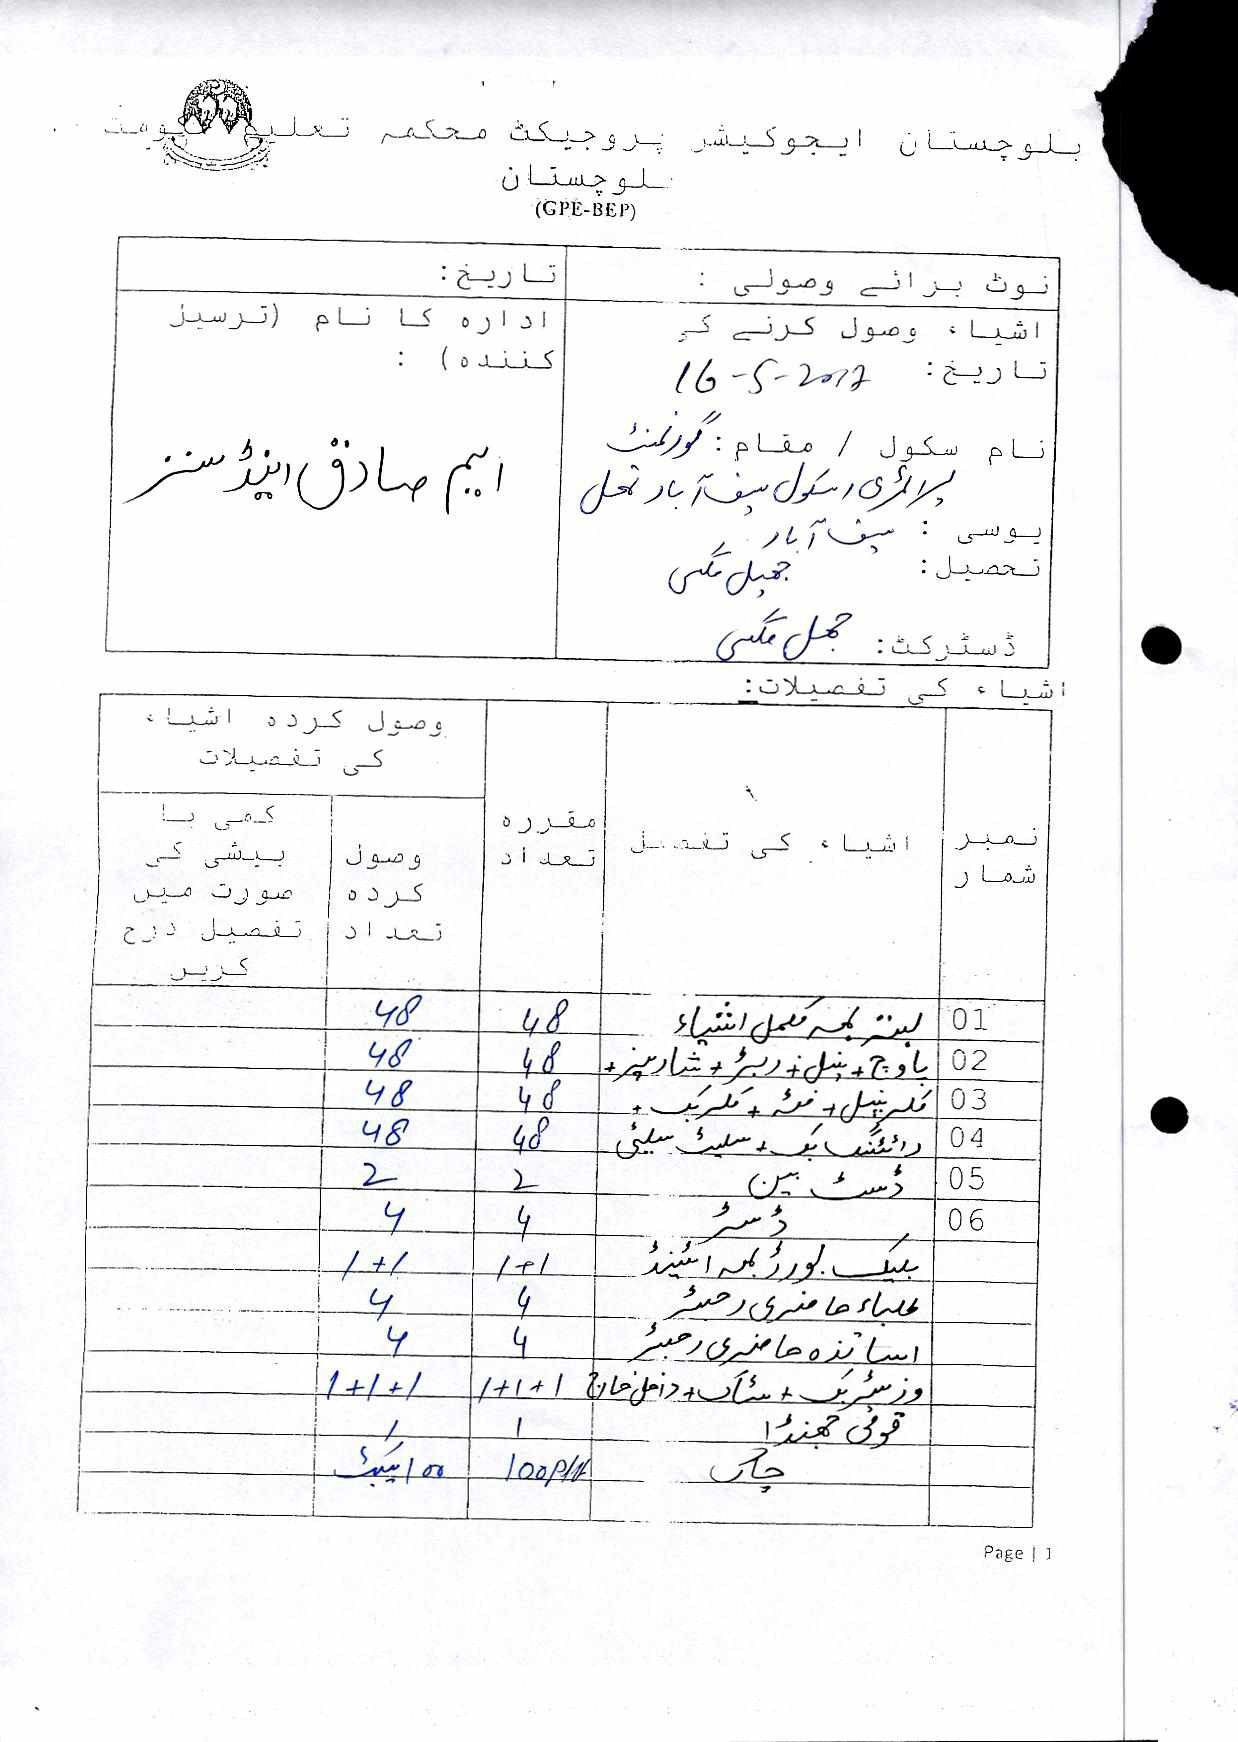 بلوچستان ایجوکیشر پروجیکٹ محکمہ تعلیم حکومت
بلوچستان
(GPE-BEP)
نوٹ برائے وصولی :
تاریخ:
اشیاء وصول کرنے کی
تاریخ: 16-5-2017
نام سکول / مقام: گورنمنٹ
پرائمری اسکول سیف آباد تحصیل
یوسی : سیف آباد
تحصیل: جھل مگسی
ڈسٹرکٹ: جھل مگسی
ادارہ کا نام (ترسیل
کنندہ) :
ایم صادق اینڈ سنز
اشیاء کی تفصیلات:
نمبر شمار
اشیاء کی تفصیل
مقررہ تعداد
وصول کردہ اشیاء
کی تفصیلات
وصول کردہ تعداد
کمی یا
بیشی کی
صورت میں
تفصیل درج
کریں
01 بستہ بمعہ مکمل اشیاء 48 48
02 پاوچ + پنسل + ربڑ + شارپنر + 48 48
03 کلر پنسل + فٹہ + کلر بک + 48 48
04 رائٹنگ بک + سلیٹ سلیٹی 48 48
05 ڈسٹ بین 2 2
06 ڈسٹر 4 4
بلیک بورڈ بمعہ اسٹینڈ 1+1 1+1
طلباء حاضری رجسٹر 4 4
اساتذہ حاضری رجسٹر 4 4
وزیٹر بک + سٹاک + داخل خارج 1+1+1 1+1+1
قومی جھنڈا 1 1
چاک 100 100 پیکٹ
Page | 1